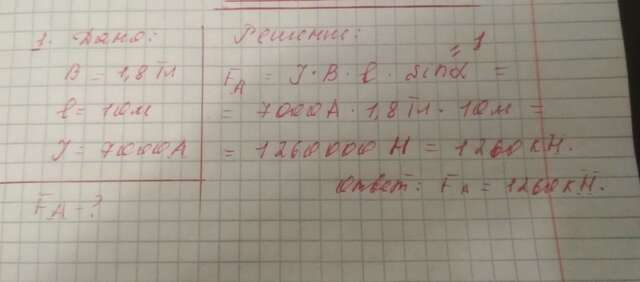 1. Дано:
B = 1,8 Тл
l = 10м
J = 7000А
FA - ?
Решение:
FA = J · B · l · sinα =
= 1
= 7000А · 1,8 Тл · 10м =
= 1260000 Н = 1260 кН.
Ответ: FA = 1260 кН.